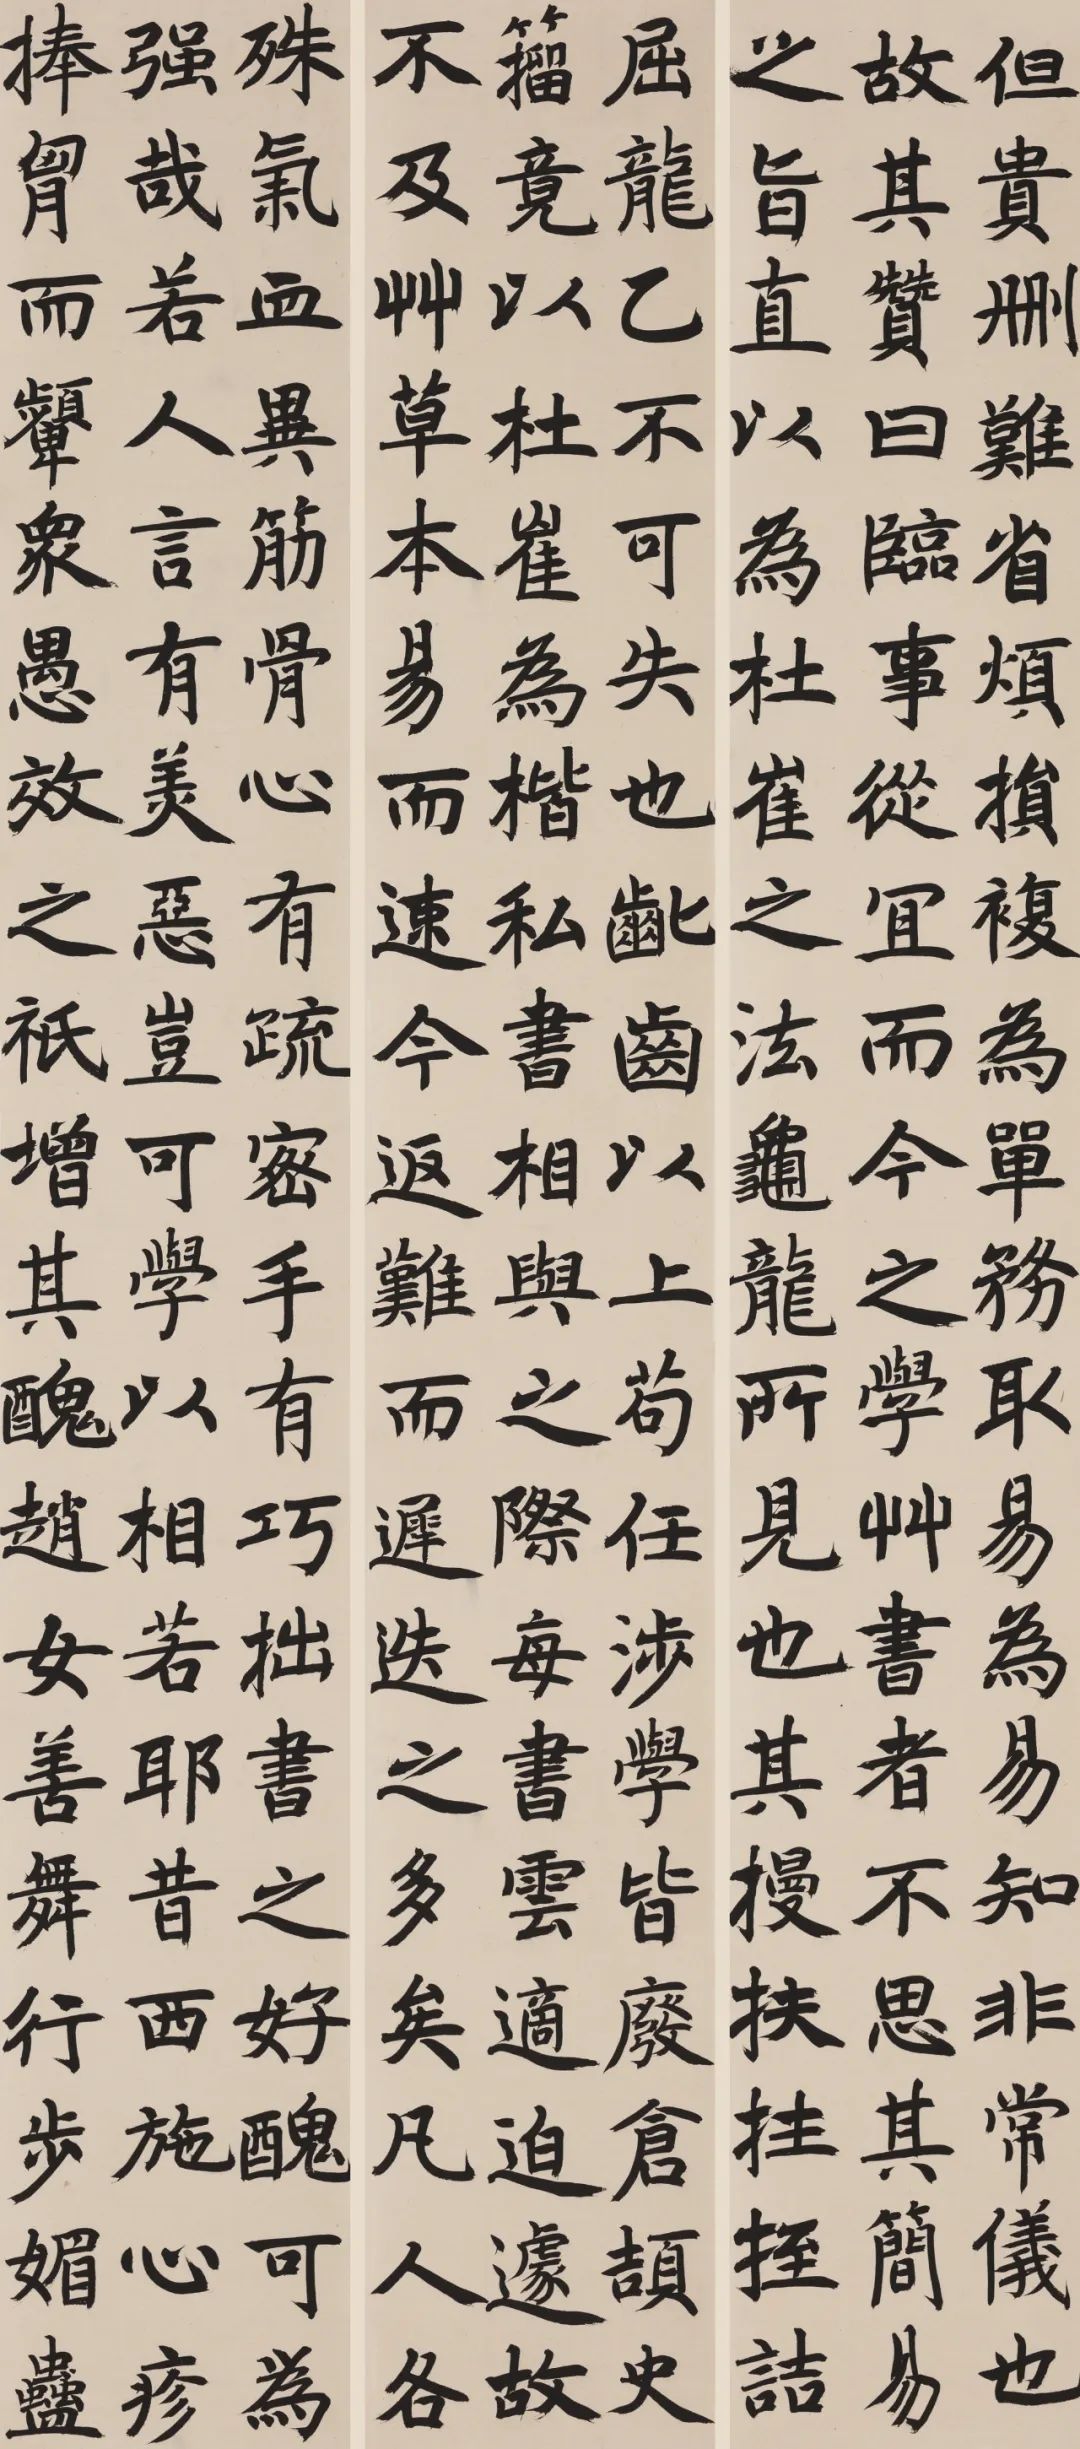 但貴刪難省煩損複為單務取易為易知非常儀也
故其贊曰臨事從宜而今之學艸書者不思其簡易
之旨直以為杜崔之法龜龍所見也其㨢扶挂挃詰
屈龍乙不可失也齔齒以上苟任涉學皆廢倉頡史
籀竟以杜崔為楷私書相與之際每書雲適迫遽故
不及艸草本易而速今返難而遲迭之多矣凡人各
殊氣血異筋骨心有疏密手有巧拙書之好醜可為
强哉若人言有美惡豈可學以相若耶昔西施心疹
捧胷而顰衆愚效之祇增其醜趙女善舞行步媚蠱